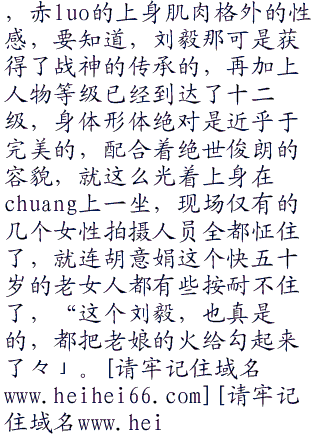 ，赤luo的上身肌肉格外的性
感，要知道，刘毅那可是获
得了战神的传承的，再加上
人物等级已经到达了十二
级，身体形体绝对是近乎于
完美的，配合着绝世俊朗的
容貌，就这么光着上身在
chuang上一坐，现场仅有的
几个女性拍摄人员全都怔住
了，就连胡意娟这个快五十
岁的老女人都有些按耐不住
了，“这个刘毅，也真是
的，都把老娘的火给勾起来
了々」。[请牢记住域名
www.heihei66.com][请牢记
住域名www.hei